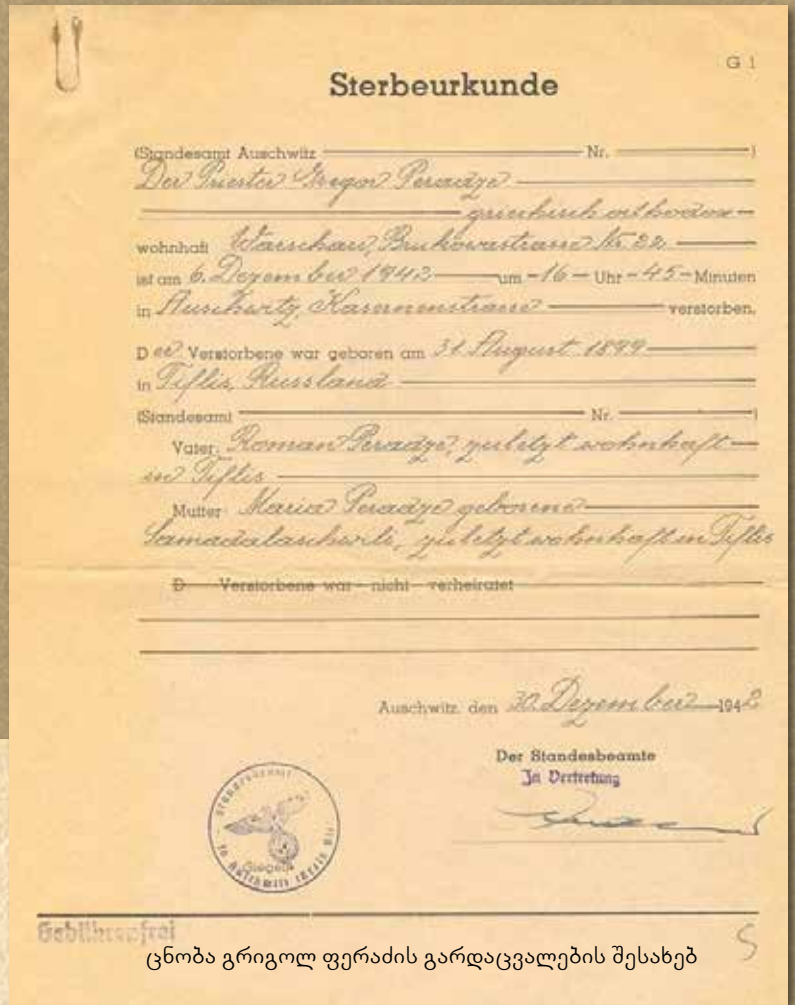 G 1
Sterbeurkunde
(Standesamt Auschwitz Nr. )
Der Priester Gregor Peradze
griechisch orthodox
wohnhaft Warschau, Brukowastrasse Nr. 22
ist am 6. Dezember 1942 um 16 Uhr 45 Minuten
in Auschwitz, Kasernenstrasse verstorben.
Der Verstorbene war geboren am 31. August 1899
in Tiflis, Russland
(Standesamt Nr. )
Vater: Roman Peradze, zuletzt wohnhaft
in Tiflis
Mutter: Maria Peradze geborene
Samadalaschwili, zuletzt wohnhaft in Tiflis
D Verstorbene war nicht verheiratet
Auschwitz, den 30. Dezember 1942
Der Standesbeamte
In Vertretung
Standesamt
Siegel
in Auschwitz
Gebührenfrei
ცნობა გრიგოლ ფერაძის გარდაცვალების შესახებ